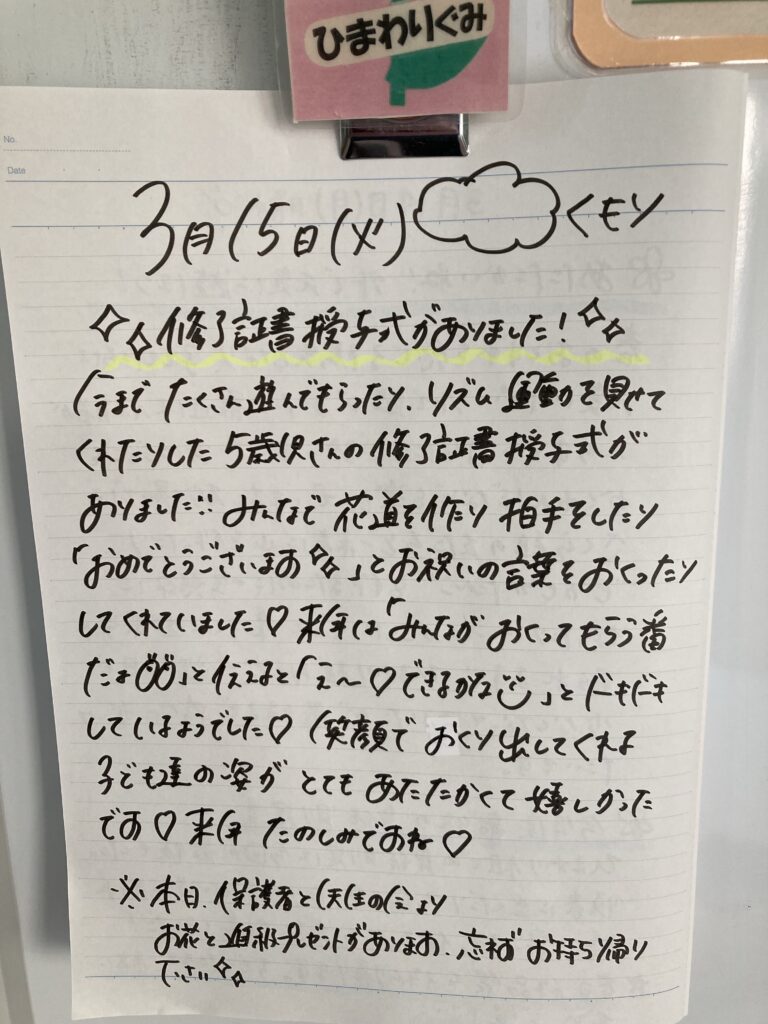 ひまわりぐみ
No.
Date
3月15日(火) くもり
修了証書授与式がありました!
今まで たくさん遊んでもらったり、リズム運動を見せて
くれたりした 5歳児さんの修了証書授与式が
ありました!! みんなで 花道を作り 拍手をしたり
「おめでとうございます」とお祝いの言葉をおくったり
してくれていました♡ 来年は「みんなが おくってもらう番
だよ」と伝えると「え〜♡できるかな」とドキドキ
しているようでした♡ 笑顔で おくり出してくれる
子ども達の姿が とても あたたかくて 嬉しかった
です♡ 来年 たのしみですね♡
※ 本日、保護者と先生の会より
お花と進級プレゼントがあります、忘れず お持ち帰り
下さい